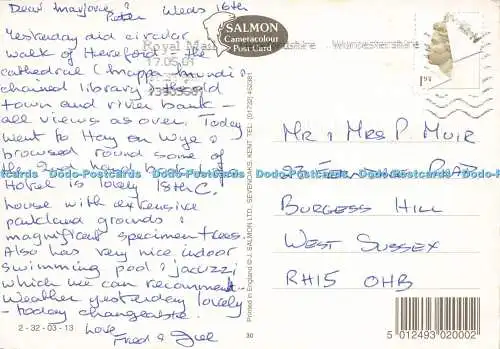 Dear Marjorie &
Peter Weds 16th
Yesterday did circular
walk of Hereford - the
cathedral (mappa mundi &
chained library) the old
town and river bank -
all views as over. Today
went to Hay on Wye &
browsed round some of
the 2nd hand bookshops.
Hotel is lovely 18th C.
house with extensive
parkland grounds &
magnificent specimen trees
Also has very nice indoor
swimming pool & jacuzzi
which we can recommend.
Weather yesterday lovely
- today changeable.
Love
Fred &
2-32-03-13
SALMON
Cameracolour
Post Card
Royal Mail Worcestershire
17.05.01
1st
Printed in England © J. SALMON LTD., SEVENOAKS, KENT. TEL: (01732) 452381
30
Mr & Mrs P Muir
Burgess Hill
West Sussex
RH15 0HB
Dodo-Postcards Dodo-Postcards Dodo-Postcards Dodo-Postcards
5 012493 020002